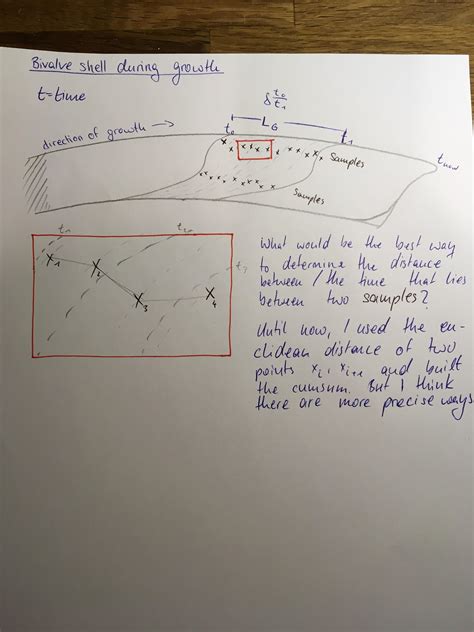 Bivalve shell during growth
t=time
δ t₀/t₁
L_G
direction of growth →
t₀
t₁
t_now
samples
samples
t₁
t₂
x₁
x₂
x₃
x₄
What would be the best way
to determine the distance
between / the time that lies
between two samples?
Until now, I used the eu-
clidean distance of two
points xᵢ, xᵢ₊₁ and built
the cumsum. But I think
there are more precise ways